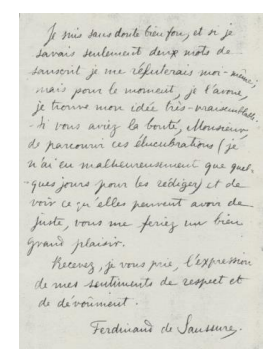 Je suis sans doute bien fou, et si je
savais seulement deux mots de
sanscrit je me réfuterais moi-même;
mais pour le moment, je l'avoue,
je trouve mon idée très-vraisemblable.
Si vous aviez la bonté, Monsieur,
de parcourir ces élucubrations (je
n'ai eu malheureusement que quel-
ques jours pour les rédiger) et de
voir ce qu'elles peuvent avoir de
juste, vous me feriez un bien
grand plaisir.
Recevez, je vous prie, l'expression
de mes sentiments de respect et
de dévoûment.
Ferdinand de Saussure.